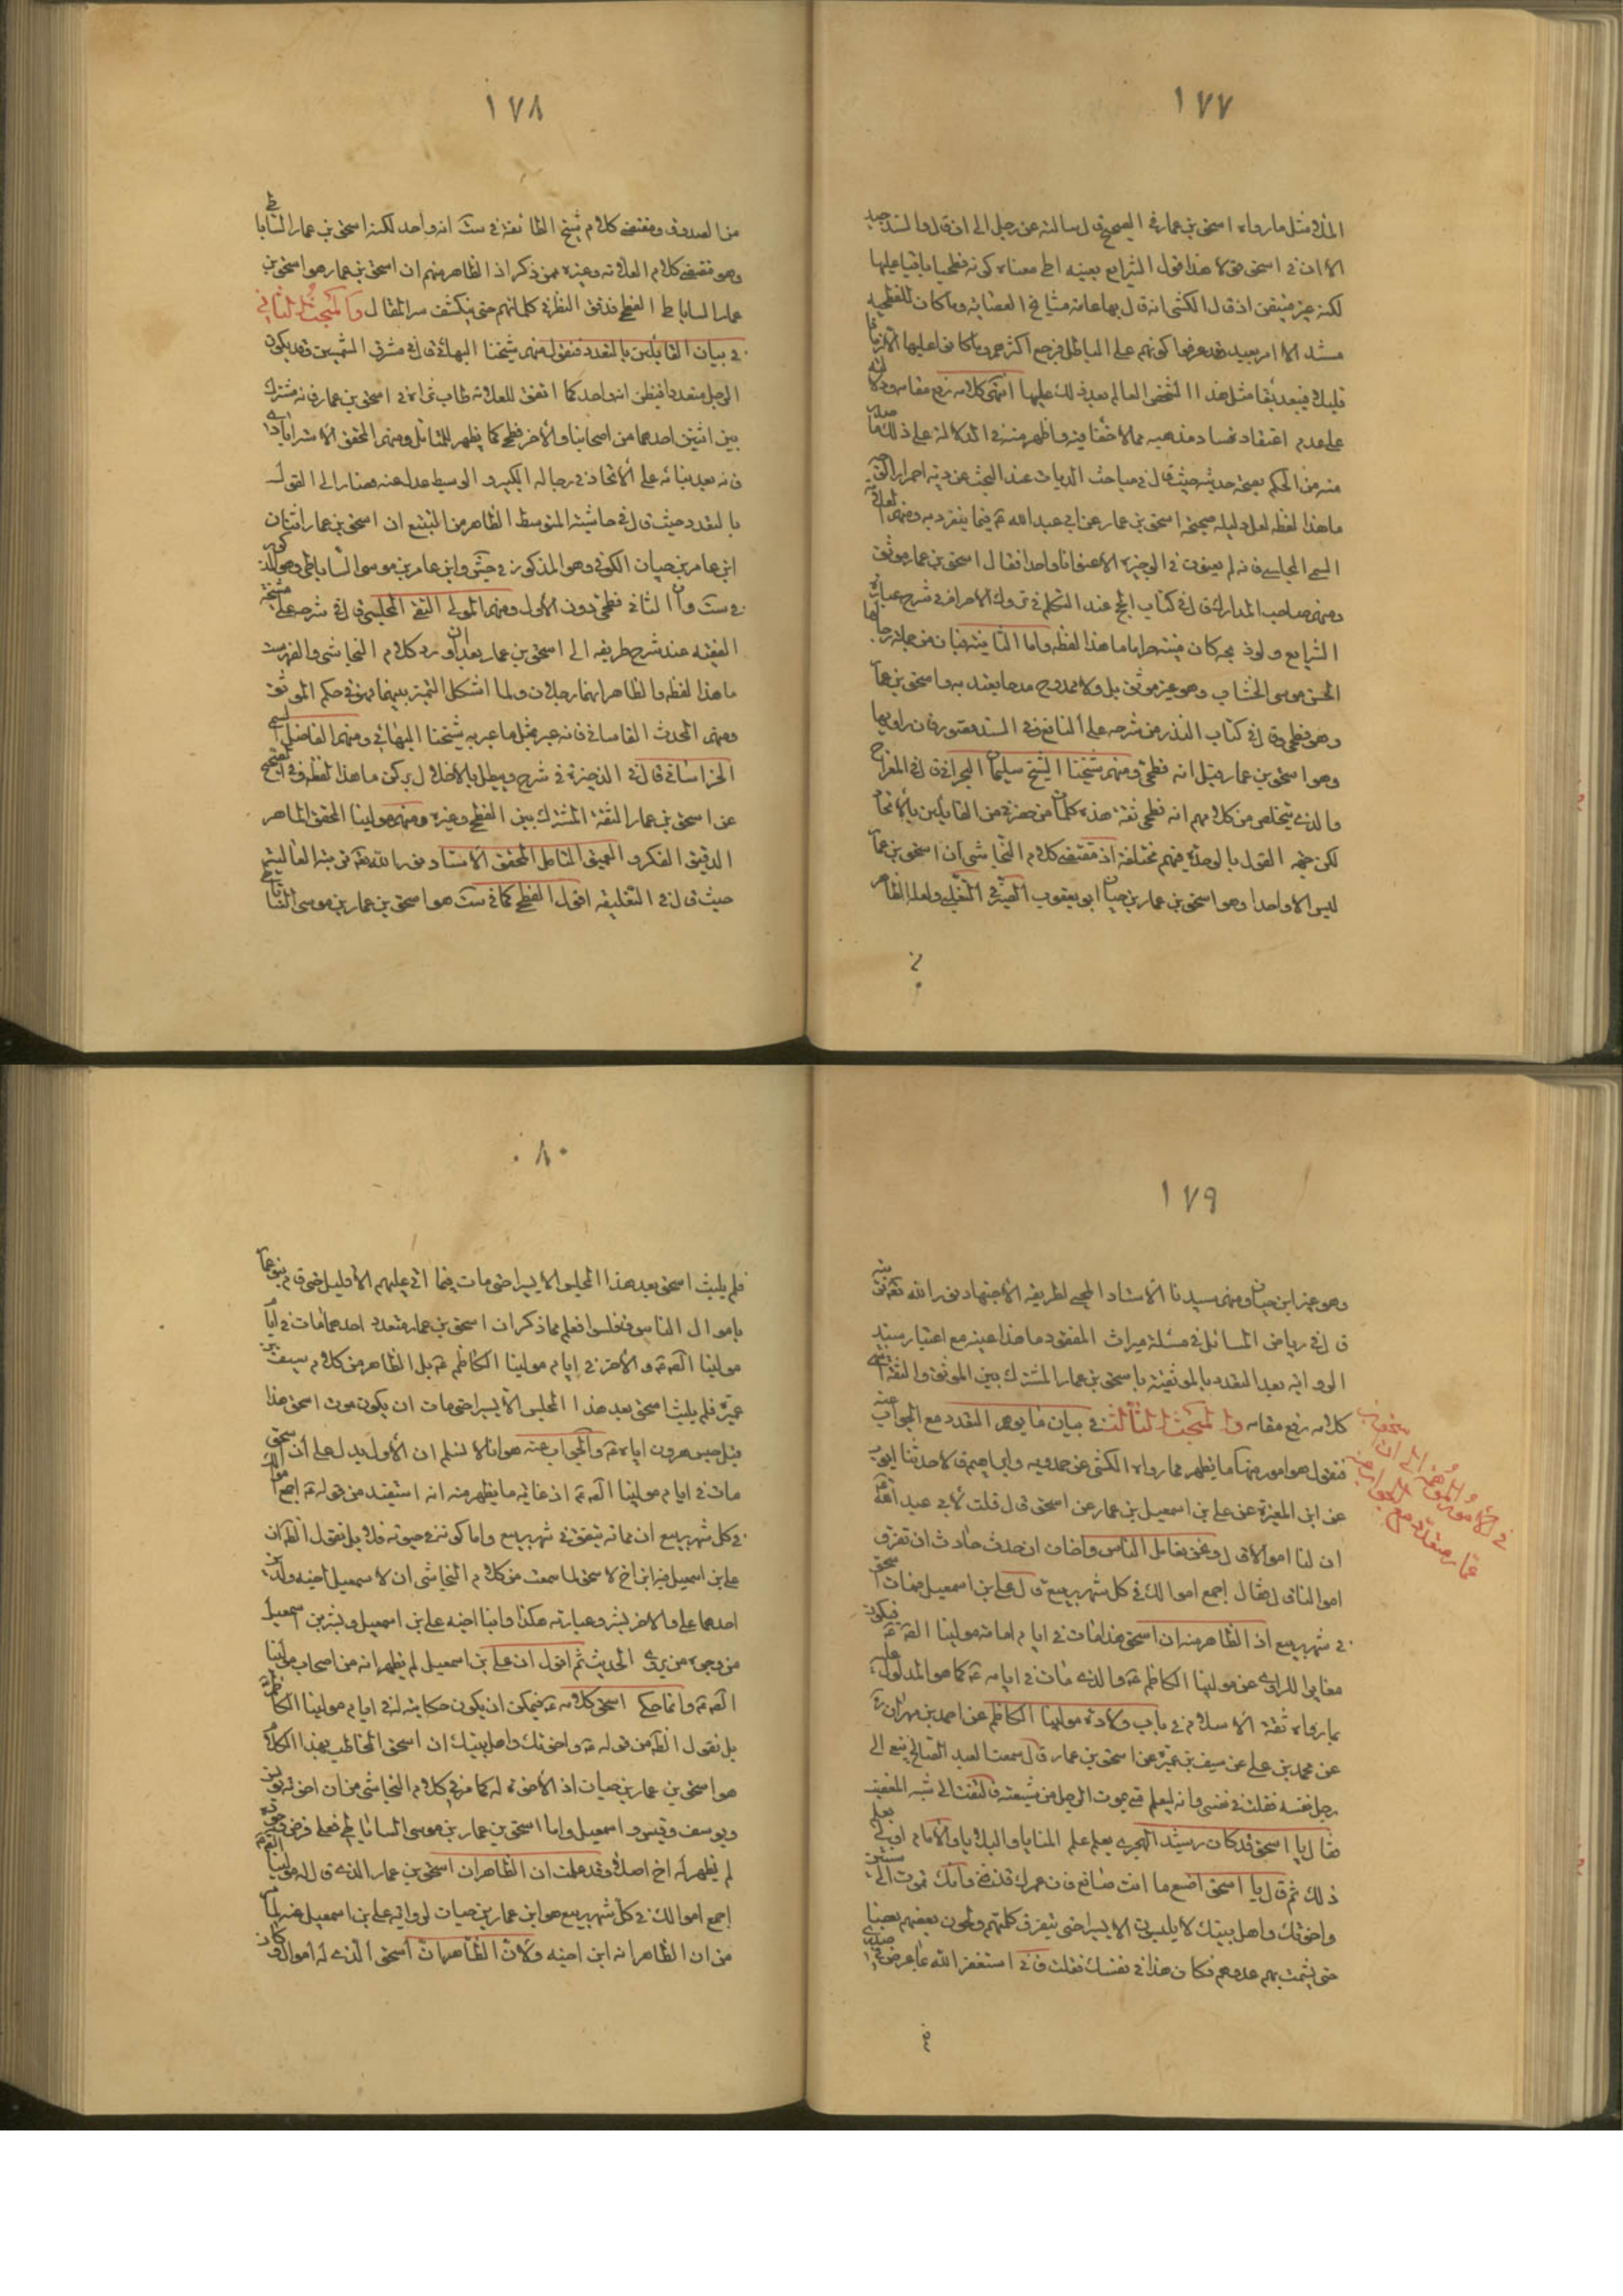 ١٧٧
المذكور مثل ما رواه اسحق بن عمار في الصحيح قال سالته عن رجل الى ان قال والسند جيد
الا ان في اسحق قولا هذا قول الشرايع بعينه اى معناه كونه فطحيا باقيا عليها
لكنه غير متيقن اذ قال الكشى انه قال بها عامة مشايخ العصابة وما كان للفطحية
على عدم اعتقاد فساد مذهبه مما لا خفاء فيه واظهر منه في الدلالة على ذلك ما صدر
منه من الحكم بصحة حديثه حيث قال في مباحث الديات عند البحث عن دية
ما هذا لفظه لعل دليله صحيحة اسحق بن عمار عن ابي عبد الله ع فيما ينفرد به ومنهم العلامة
السمى المجلسي فانه لم يعنون في الوجيزة الا عنوانا واحدا فقال اسحق بن عمار موثق
ومنهم صاحب المدارك قال في كتاب الحج عند التكلم في تروك الاحرام في شرح عبارة
الشرايع ما هذا لفظه واما الثانية فبان من جملة رجالها
الحسن بن موسى الخشاب وهو غير موثق بل ولا ممدوح مدحا يعتد به واسحق بن عمار
وهو فطحى وقال في كتاب النذر من شرحه على النافع وفي السند قصور فان راويها
وهو اسحق بن عمار قيل انه فطحى ومنهم شيخنا الشيخ سليمان البحراني قال في المعراج
والذى يتخلص من كلامهم انه فطحى ثقة هذه كلمات من حضرني من القايلين بالاتحاد
لكن جهة القول بالوحدة فيهم مختلفة اذ مقتضى كلام النجاشى ان اسحق بن عمار
ليس الا واحدا وهو اسحق بن عمار بن حيان ابو يعقوب الصيرفي التغلبي ولعله الظاهر
١٧٨
من الصدوق ومقتضى كلام شيخ الطائفة في ست انه واحد لكنه اسحق بن عمار الساباطى
وهو مقتضى كلام العلامة وغيره ممن ذكر اذ الظاهر منهم ان اسحق بن عمار هو اسحق بن
عمار الساباطى الفطحى فدقق النظر في كلماتهم حتى ينكشف سر المقال والمبحث الثاني
في بيان القائلين بالتعدد فنقول منهم شيخنا البهائي قال في مشرق الشمسين قد يكون
الرجل متعددا فيظن انه واحد كما اتفق للعلامة طاب ثراه في اسحق بن عمار فانه مشترك
بين اثنين احدهما من اصحابنا والاخر فطحى كما يظهر للمتامل ومنهم المحقق الاسترابادى
فانه بعد بنائه على الاتحاد في رجاله الكبير والوسيط عدل عنه وصار الى القول
بالتعدد حيث قال في حاشية المتوسط الظاهر من التتبع ان اسحق بن عمار اثنان
ابن عمار بن حيان الكوفي وهو المذكور في جش وابن عمار بن موسى الساباطى وهو المذكور
في ست وان الثاني فطحى دون الاول ومنهم المولى التقى المجلسى قال في شرحه على مشيخة
الفقيه عند شرح طريقه الى اسحق بن عمار بعد ان اورد كلام النجاشى والفهرست
ما هذا لفظه والظاهر انهما رجلان ولما اشكل التميز بينهما فهو في حكم الموثق
ومنهم المحدث القاساني فانه عبر بمثل ما عبر به شيخنا البهائي ومنهم الفاضل السمى
الخراساني قال في الذخيرة في شرح ويبطل بالاخلال بركن ما هذا لفظه وفي الصحيح
عن اسحق بن عمار الثقة المشترك بين الفطحى وغيره ومنهم مولينا المحقق الماهر
الدقيق الفكر والعميق التامل المحقق الاستاد نور الله تعه مرقده الغاليته
حيث قال في التعليقة اقول الفطحى كما في ست هو اسحق بن عمار بن موسى الساباطى
١٧٩
وهو غير ابن حيان ومنهم سيدنا الاستاد المحيى لطريقة الاجتهاد نور الله تعه مرقده
قال في رياض المسائل في مسئلة ميراث المفقود ما هذا عينه مع اعتبار سند
الرواية بعد التعدد بالموثقية باسحق بن عمار المشترك بين الموثق والثقة انتهى
كلامه رفع مقامه والمبحث الثالث في بيان ما يوهم التعدد مع الجواب عنه
فنقول هو امور منها ما يظهر مما رواه الكشى عن حمدويه وابراهيم قالا حدثنا ايوب
عن ابن المغيرة عن علي بن اسمعيل بن عمار عن اسحق قال قلت لابي عبد الله ع
ان لنا اموالا قال ونحن نعامل الناس واخاف ان حدث حادث ان تفرق
اموالنا قال فقال اجمع اموالك في كل شهر ربيع قال علي بن اسمعيل فمات اسحق
في شهر ربيع اذ الظاهر منه ان اسحق هذا مات في ايام امامة مولينا الصه ع فيكون
مغايرا للراوى عن مولينا الكاظم ع والذى مات في ايامه ع كما هو المدلول عليه
بما رواه ثقة الاسلام في باب ولادة مولينا الكاظم عن احمد بن مهران
عن محمد بن علي عن سيف بن عميرة عن اسحق بن عمار قال سمعت العبد الصالح ينعى الى
رجل نفسه فقلت في نفسى وانه ليعلم متى يموت الرجل من شيعته فالتفت الى شبه المغضب
فقال يا اسحق قد كان رشيد الهجرى يعلم علم المنايا والبلايا والامام اولى بعلم
ذلك ثم قال يا اسحق اصنع ما انت صانع فان عمرك قد فنى وانك تموت الى سنتين
واخوتك واهل بيتك لا يلبثون الا يسيرا حتى يتفرق كلمتهم ويخون بعضهم بعضا
حتى يشمت بهم عدوهم فكان هذا في نفسك فقلت فانى استغفر الله بما عرض في صدرى
في الامور الموهمة الى ان اسحق بن
عمار متعدد مع الجواب عنه
١٨٠
فلم يلبث اسحق بعد هذا المجلس الا يسيرا حتى مات فما اتى عليهم الا قليل حتى قام بنو عمار
باموال الناس فافلسوا فعلم مما ذكر ان اسحق بن عمار متعدد احدهما مات في ايام
مولينا الصه ع والاخر في ايام مولينا الكاظم ع بل الظاهر من كلام سيف بن
عميرة فلم يلبث اسحق بعد هذا المجلس الا يسيرا حتى مات ان يكون موت اسحق هذا
قبل حبس هرون اياه ع والجواب عنه هو انا لا نسلم ان الاول يدل على ان اسحق
مات في ايام مولينا الصه ع اذ غاية ما يظهر منه انه استفيد من قوله ع اجمع اموالك
في كل شهر ربيع ان مماته يتفق في شهر ربيع واما كونه في حيوته فلا بل نقول الظه ان
علي بن اسمعيل هو ابن اخ لاسحق لما سمعت من كلام النجاشى ان لاسمعيل اخيه ولدين
احدهما علي والاخر بشر وعبارته هكذا وابنا اخيه علي بن اسمعيل وبشر بن اسمعيل
من وجوه من روى الحديث ثم اقول ان علي بن اسمعيل لم يظهر انه من اصحاب مولينا
الصه ع وانما حكى اسحق كلامه ع فيمكن ان يكون حكايته له في ايام مولينا الكاظم ع
بل نقول الظه من قوله ع واخوتك واهل بيتك ان اسحق المخاطب بهذا الكلام
هو اسحق بن عمار بن حيان اذ الاخوة له كما مر في كلام النجاشى من ان اخوته يونس
ويوسف وقيس واسمعيل واما اسحق بن عمار بن موسى الساباطى فعلى فرض وجوده
لم يظهر له اخ اصلا وقد علمت ان الظاهر ان اسحق بن عمار الذى قال له مولينا الصه ع
اجمع اموالك في كل شهر ربيع هو ابن عمار بن حيان لرواية علي بن اسمعيل عنه لما مر
من ان الظاهر انه ابن اخيه ولان الظاهر ان اسحق الذى له اموال كان